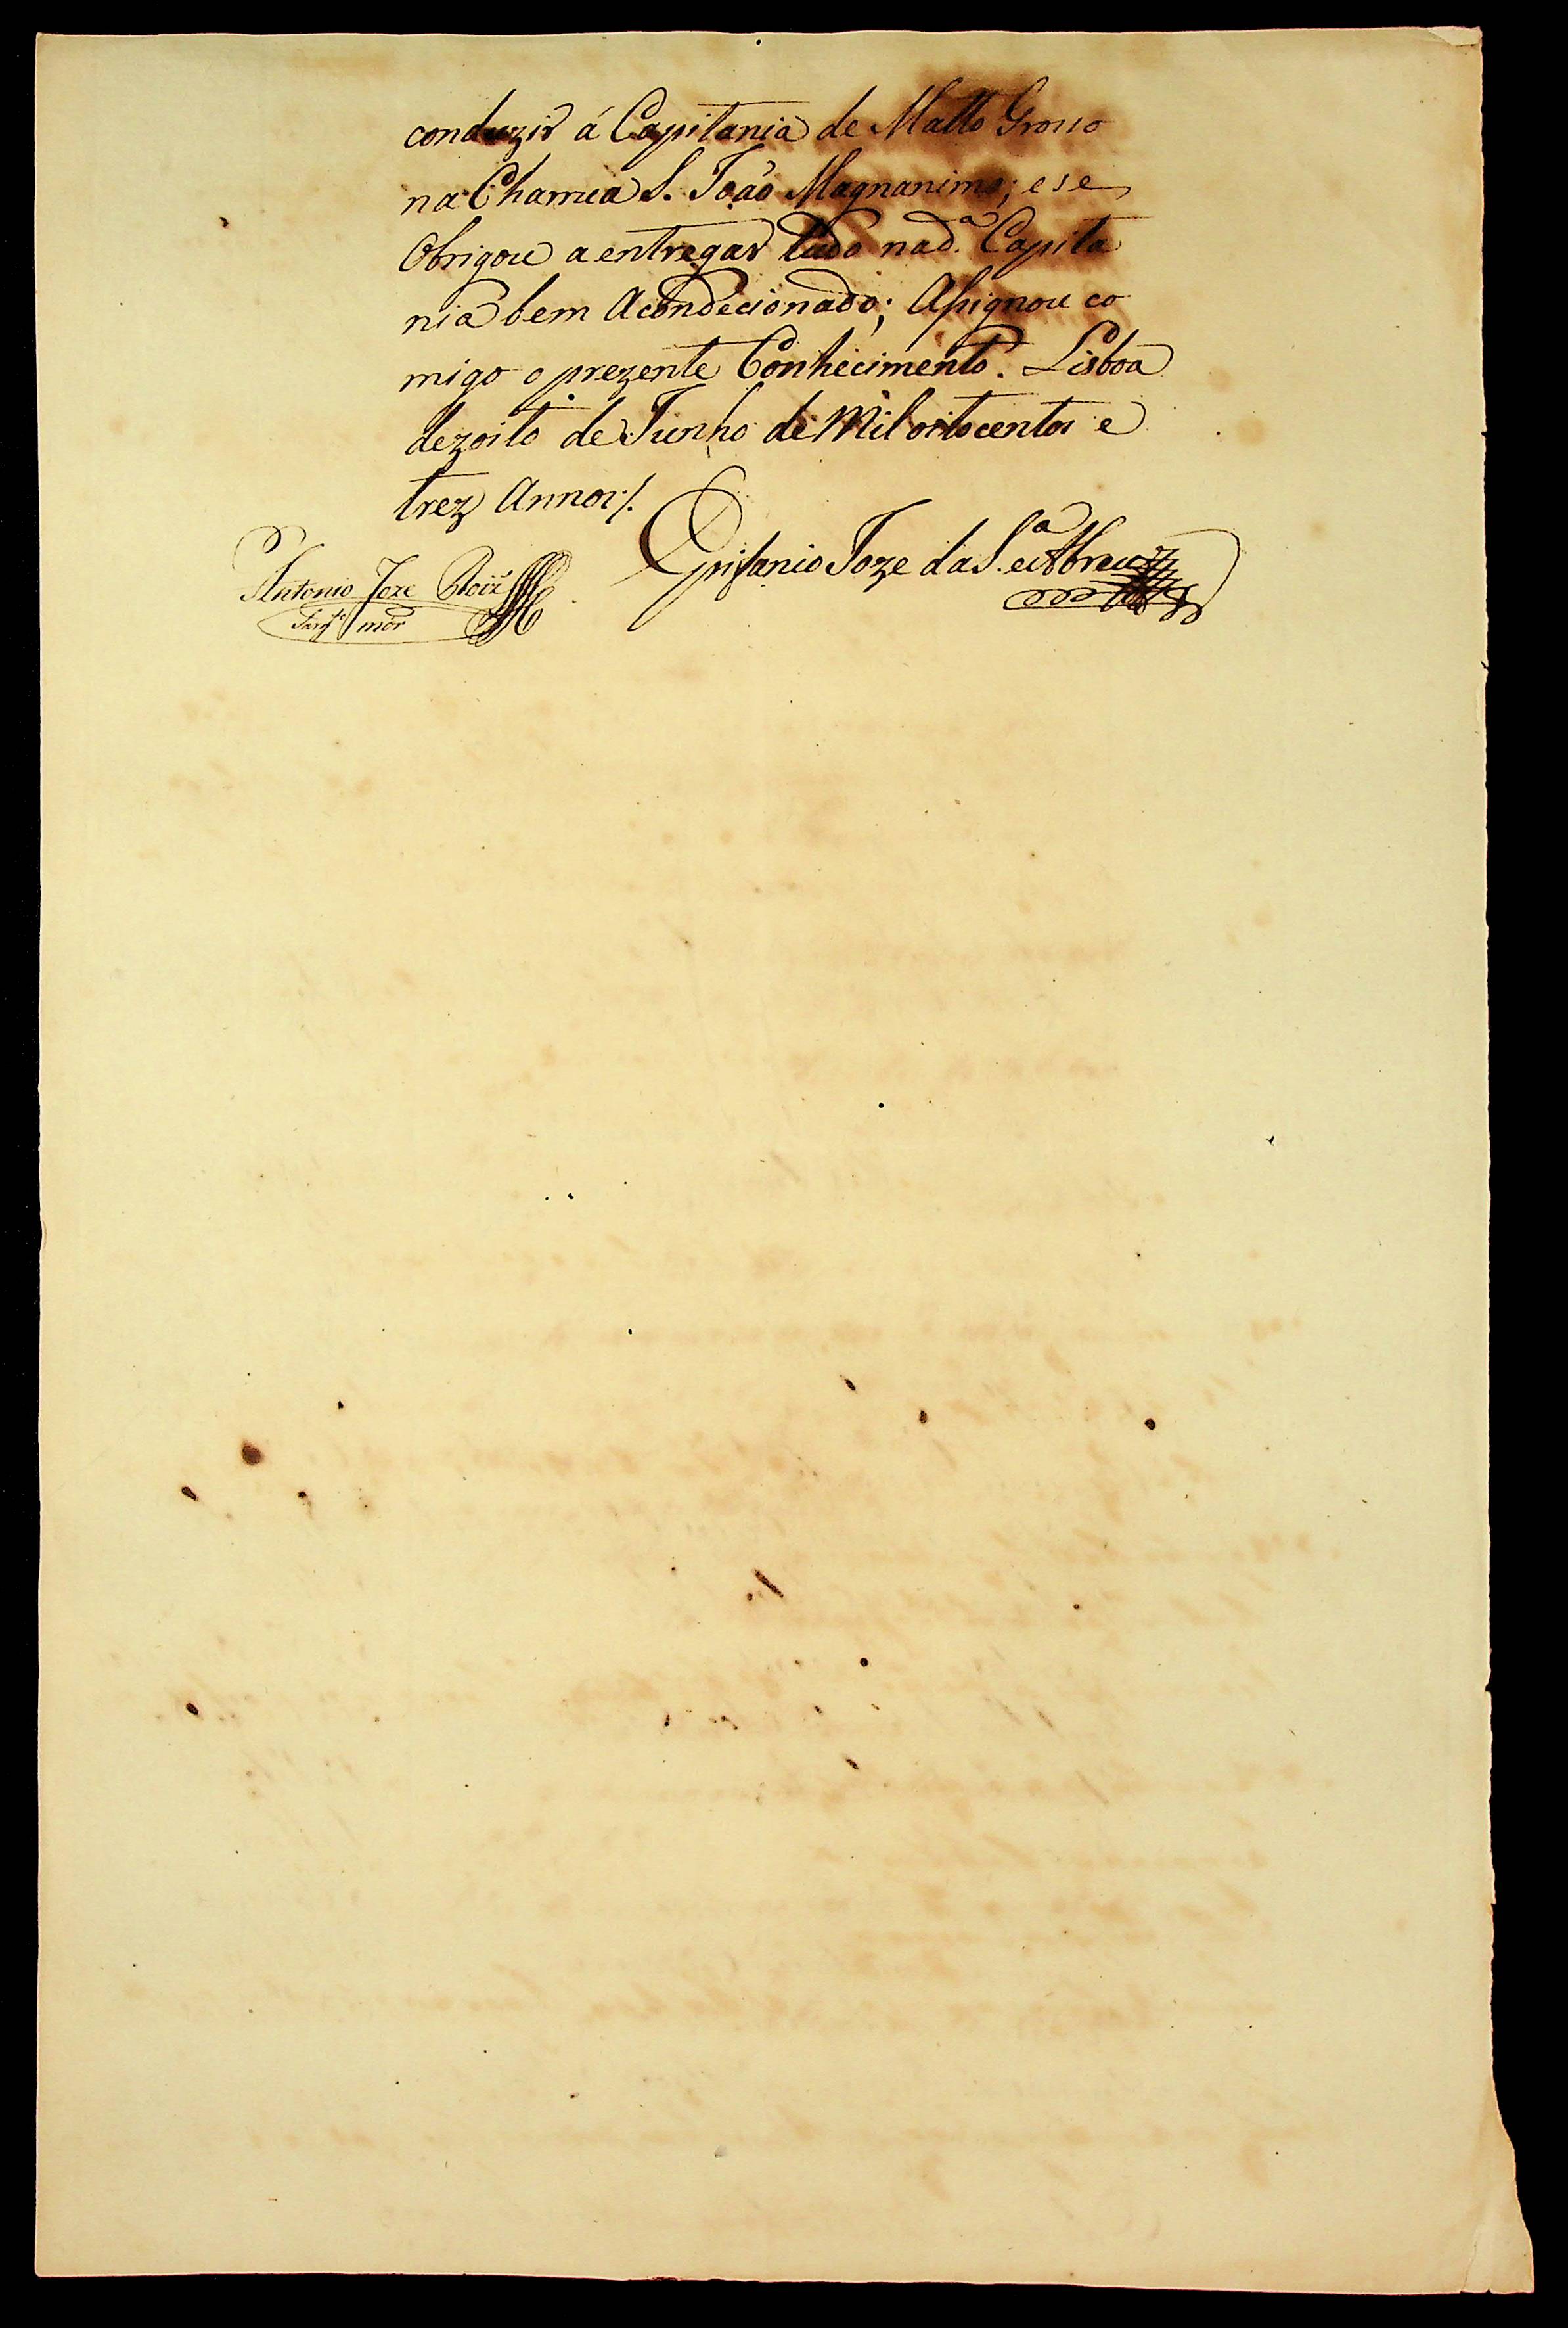 conduzir á Capitania de Matto Grosso
na Charrua S. João Magnanimo; e se
Obrigou a entregar tudo na d.ª Capita
nia bem Acondecionado; Assignou co
migo o prezente Conhecimento. Lisboa
dezoito de Junho de Mil oitocentos e
trez Annos./.
Epifanio Joze da S.ª e Abreu
Antonio Joze Roiz
Sarg.to mór